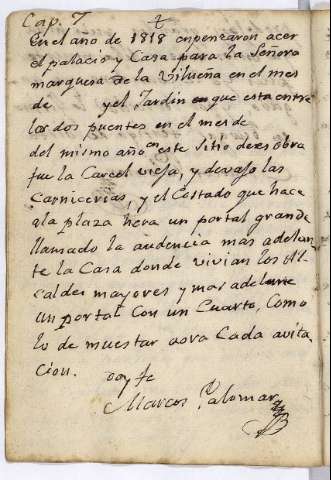 Cap. 7
En el ano de 1818 enpenzaron acer
el palacio y Casa para la Señora
marquesa de la Viluena en el mes
de y el Jardin en que esta entre
los dos puentes en el mes de
del mismo año en este Sitio deesobra
fue la Carcel viefa, y devajo las
Carnicerias, y el Costado que hace
ala plaza hera un portal grande
llamado la audencia mas adelan
te la Casa donde vivian los Al
caldes mayores y mas adelante
un portal Con un Cuarto, Como
lo de muestar aora Cada avita
cion. doy fe
Marcos Palomar